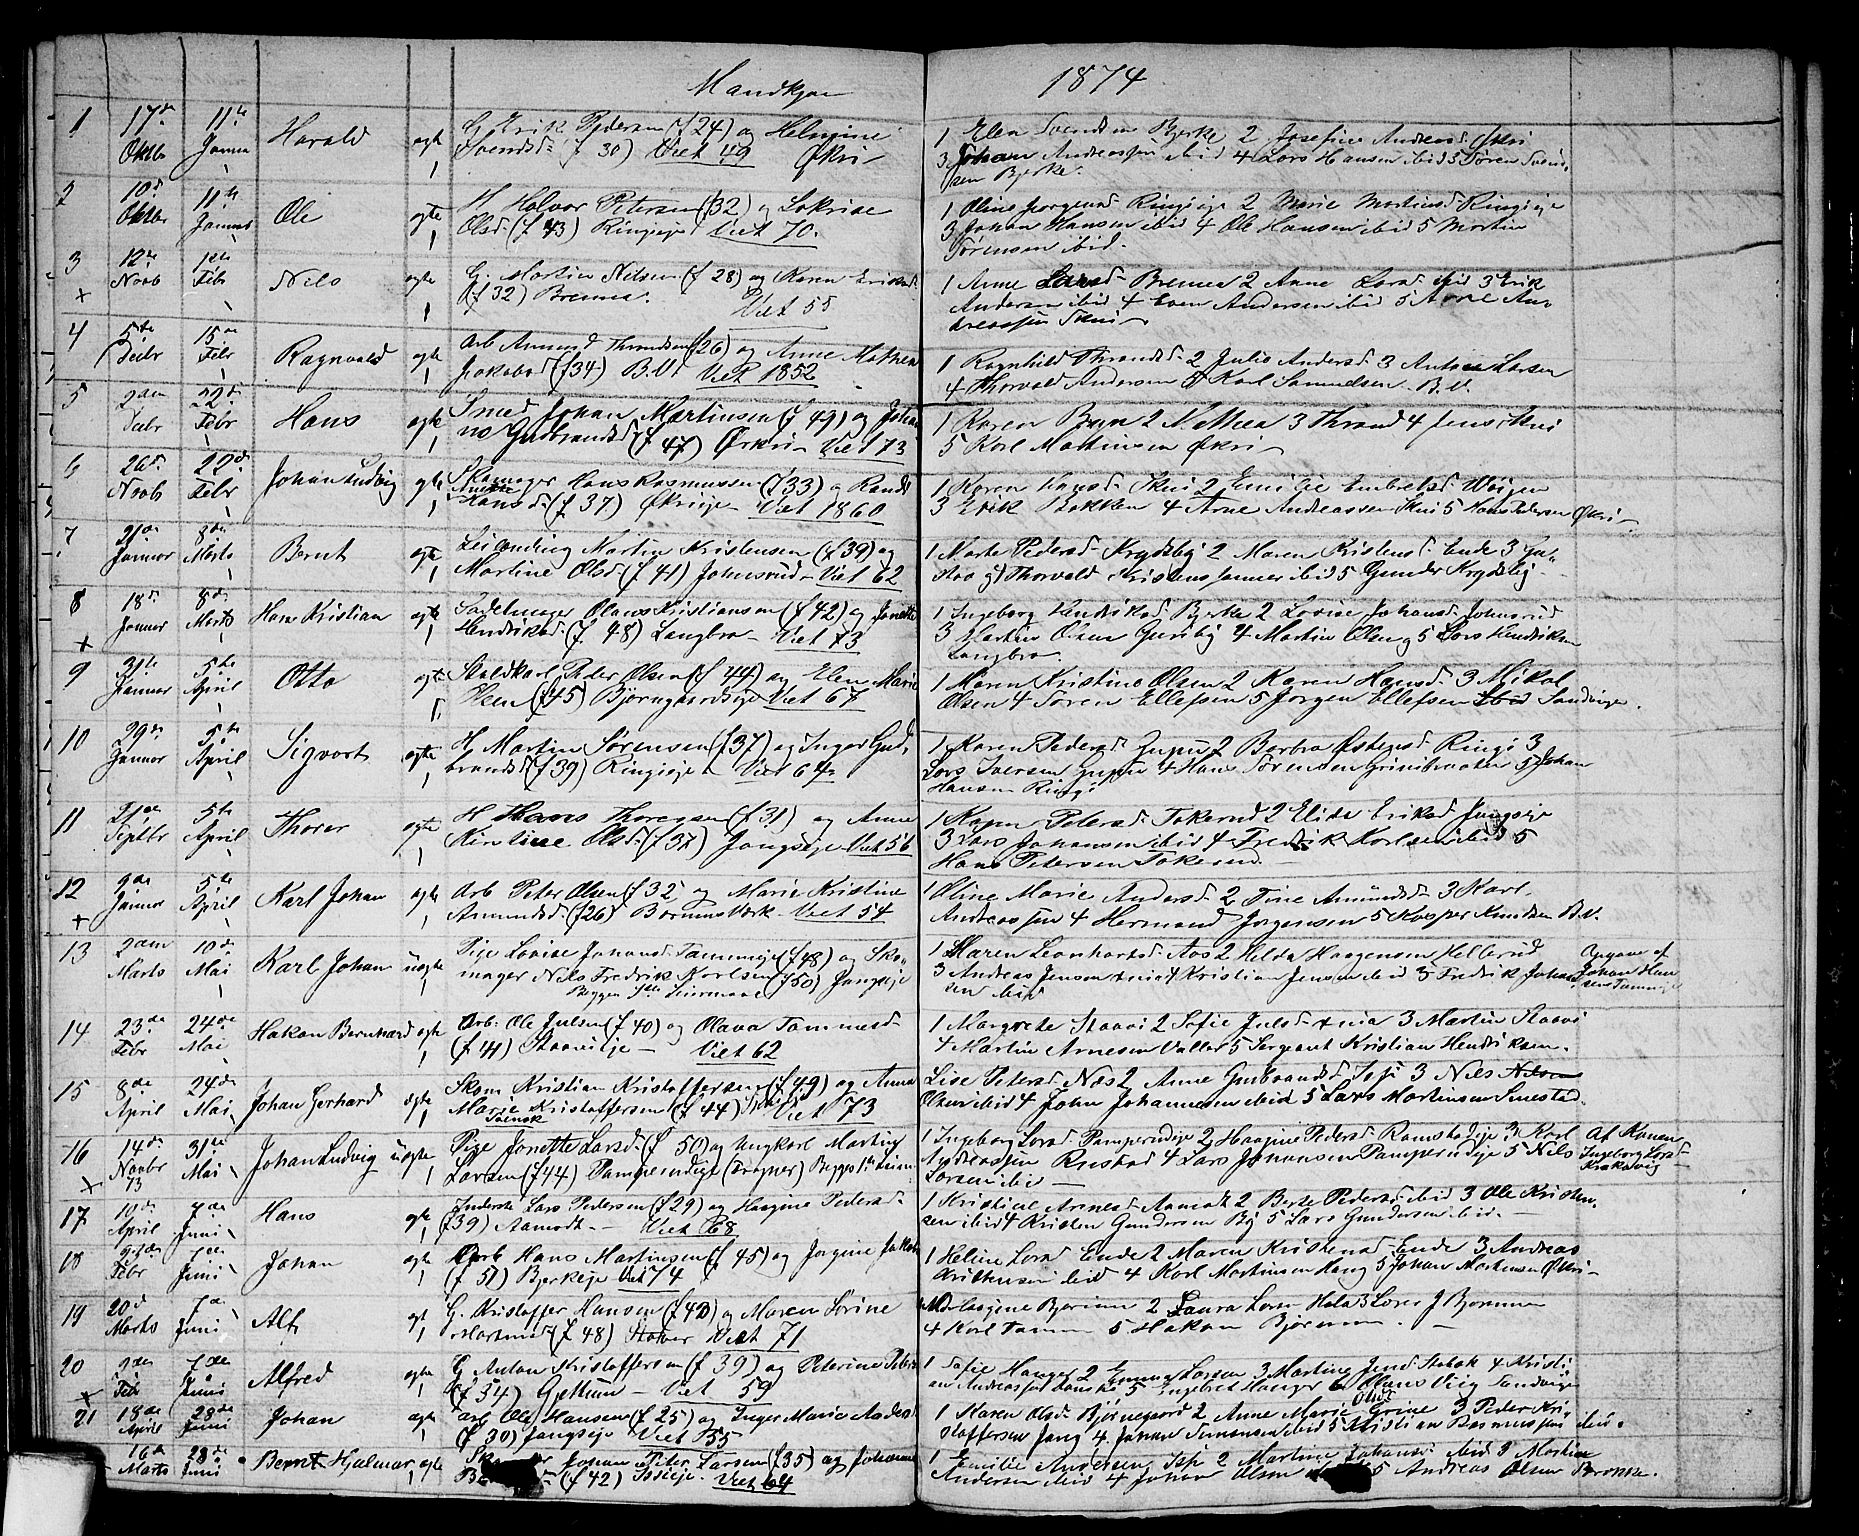 Mandkjøn 1874
1 17de Oktbr 11te Januar Harald ægte 1 G. Erik Pedersen (f 24) og Helmine
Svendsd. (f 30) Viet 49 Økri
1 Elen Svendsen Bjerke 2 Josefine Andreasd. Økri
3 Johan Andreassen ibid 4 Lars Hansen ibid 5 Søren Svend-
sen Bjerke.
2 10de Oktbr 11te Januar Ole ægte 1 H. Halvor Petersen (f 32) og
Olsd. (f 43) Ringieje Viet 70.
1 Oline Jørgensd. Ringieje 2 Marie Martinsd. Ringieje
3 Johan Hansen ibid 4 Ole Hansen ibid 5 Martin
Sørensen ibid.
3 + 12te Novb 1ste Febr Nils ægte 1 G. Martin Nilsen (f 28) og Karen Eriksd.
(f 32) Brenna. Viet 55
1 Anne Larsd. Brenna 2 Anne Larsd. ibid 3 Erik
Andersen ibid 4 Even Andersen ibid 5 Arne An-
dreassen Skui
4 5te Decbr 15de Febr Ragnvald ægte 1 Arb Amund Thrandsen (26) og Anne Mathea
Jakobsd. (f 34) B.V. Viet 1852
1 Ragnhild Thrandsd. 2 Julie Andersd. 3 Anton Larsen
4 Thorvald Andersen 5 Karl Samuelsen. B.V.
5 2den Decbr 22de Febr Hans ægte 1 Smed Johan Martinsen (f 49) og Johan-
ne Gudbrandsd. (f 47) Økri Viet 73
1 Karen Bryn 2 Mathea 3 Thrand 4 Jens Skui
5 Karl Mathisen Økri
6 26de Novb 22de Febr Johan Ludvig ægte 1 Skomager Hans Rasmussen (f 33) og Randi
Hansd. (f 37) Økrieje Viet 1860
1 Karen Hansd. Skui 2 Emilie Embretsd. Wøien
3 Erik Bakken 4 Arne Andreassen Skui 5 Hans Pedersen Økri
7 21de Januar 8de Marts Bernt ægte 1 Leilending Martin Kristensen (f 39) og
Martine Olsd. (f 41) Johnsrud Viet 62
1 Marte Pedersd. Krydsby 2 Maren Kristensd. Ende 3 Gu-
4 Thorvald Kristenssønner ibid 5 Gunder Krydsby
8 + 18de Januar 8de Marts Hans Kristian ægte 1 Sadelmager Olaus Kristiansen (f 42) og Janette
Hendriksd. (f 48) Langbro Viet 73
1 Ingeborg Hendriksd. Bjerke 2 Lovise Johansd. Johnsrud
3 Martin Olsen Guriby 4 Martin Olsen og 5 Lars Hendriksen
Langbro.
9 31te Januar 5te April Otto ægte 1 Staldkarl Peder Olsen (f 44) og Elen Marie
Olsen (f 45) Bjørngaardseje Viet 67
1 Maren Kristine Olsen 2 Karen Hansd. 3 Mikal
Olsen 4 Søren Ellefsen 5 Jørgen Ellefsen ibid Sandvigen.
10 29de Januar 5te April Sigvart ægte 1 H. Martin Sørensen (f 37) og Inger Gud-
brandsd. (f 39) Ringieje Viet 64
1 Karen Pedersd. 2 Barbra Østensd. Ringi 3
Lars Iversen 4 Hans Sørensen Grinibraaten 5 Johan
Hansen Ringi
11 21de Septbr 5te April Thorer ægte 1 H Hans Thoresen (f 31) og Anne
Kirstine Olsd. (f 37) Jongseje Viet 56
1 Karen Petersd. Tokerud 2 Elise Eriksd. Jongseje
3 Lars Johansen ibid 4 Fredrik Karlsen ibid 5
Hans Petersen Tokerud
12 + 9de Januar 5te April Karl Johan ægte 1 Arb Peter Olsen (f 32 og Marie Kristine
Amundsd. (f 26) Bærums Værk Viet 54
1 Oline Marie Andersd. 2 Tine Amundsd. 3 Karl
Andreassen 4 Hermand Jørgensen 5 Kasper Knudsen B.V.
13 2den Marts 10de Mai Karl Johan uægte 1 Pige Lovise Johansd. Tammeje (f 48) og Sko-
mager Nils Fredrik Karlsen (f 50) Jongseje
Begges 1ste Leiermaal
1 Maren Leonhartsd. Aas 2 Helda Haagensen Hellerud
3 Andreas Jensen 4 Kristian Jensen ibid 5 Fredrik Johan-
sen ibid
Opgave af
Johan Han
sen Tammeje
14 23de Febr 24de Mai Hakon Bernhard ægte 1 Arb. Ole Julsen (f 40) og Olava Tammesd.
(f 41) Staavieje Viet 62
1 Margrete Staavi 2 Sofie Julsd. 3 Martin Staavi
4 Martin Arnesen Valler 5 Sergeant Kristian Hendriksen.
15 8de April 24de Mai Johan Gerhard ægte 1 Skom Kristian Kristoffersen (f 49) og Anna
Marie Kristoffersen (f 44) Viet 73
Svensk
Lise Petersd. Næs 2 Anne Gulbrandsd. Isi 3 Nils Nilsen
Olsen ibid 4 John Johannesen ibid 5 Lars Mortensen Smestad.
16 + 14de Novbr 73 31te Mai Johan Ludvig uægte 1 Pige Janette Larsd. (f 50) og Ungkarl Martin
Larsen (f 44) Pamperudeje (Dragner) Begges 1ste Leierm
1 Ingeborg Larsd. Pamperudeje 2 Haagine Pedersd. Ramstadeje 3 Karl
Andreassen Rustad 4 Lars Johansen Pamperudeje 5 Nils
Larsen ibid
Af Konen
Ingeborg Larsd
Kraksvig
17 10de April 7de Juni Hans ægte 1 Inderste Lars Pedersen (f 29) og Haagine Pedersd.
(f 39) Aamodt. Viet 68
1 Kristine Arnesd. Aamodt 2 Berte Pedersd. ibid 3 Ole Kristen-
sen ibid 4 Kristen Gundersen By 5 Lars Gundersen ibid.
18 Febr 7de Juni Johan ægte 1 Arb Hans Martinsen (f 45) og Jørgine Jakobs
(f 51) Bjerkeje Viet 74
1 Helene Larsd. Ende 2 Maren Kristensd. Ende 3 Andreas
Kristensen ibid 4 Karl Martinsen Haug 5 Johan Martinsen Økri
19 20de Marts 7de Juni Alf ægte 1 G. Kristoffer Hansen (f 42) og Maren Lovine
Martinsd. (f 48) Stover Viet 71
Bjerum 2 Laura
4 Karl Tanum 5 Hakon Bjerum.
20 + 9de Febr 7de Juni Alfred ægte 1 G Anton Kristoffersen (f 39) og Peterine Peters
(f 34) Gjettum Viet 59
1 Sofie Hauger 2 Emma Larsen 3 Martine Jensd. Stabæk 4 Kristi-
an Andreassen 5 Ingebret Hauger 6 Hans Viig Sandvigen
21 18de April 28de Juni Johan ægte 1 Arb Ole Hansen (f 25) og Inger Marie Andersd.
(f 30) Jongseje Viet 55
1 Karen Olsd. Bjørnegaard 2 Anne Marie Olsd. Grine 3 Peder Kri-
stoffersen Jong 4 Johan Simonsen ibid 5 Kristian Rasmussen ibid.
16de Marts 28de Juni Bernt Hjalmar ægte Johan Peter Larsen (f 35) og Johanne
(f 42) Isieje. Viet 64
1 Emilie Andersen Isi 2 Martine Johansd. ibid 3 Martin
Andersen ibid 4 Johan Olsen 5 Andreas Olsen Brønne.